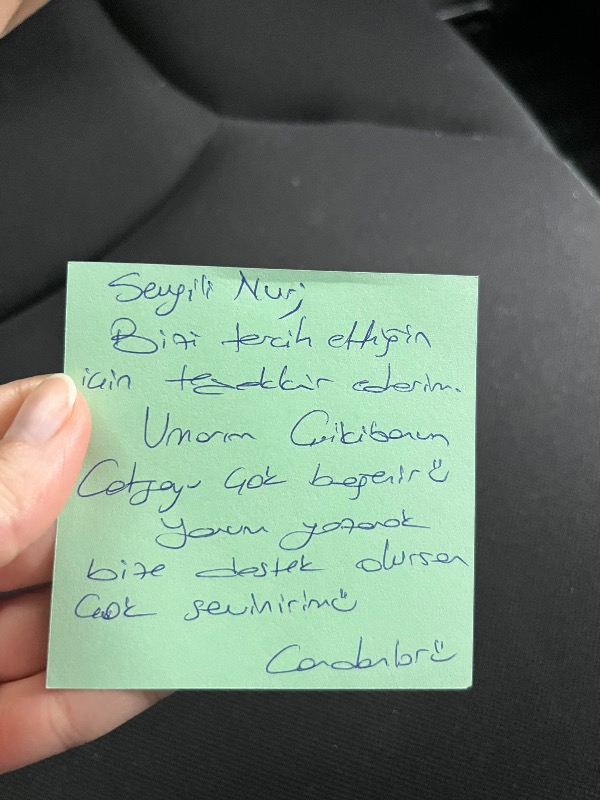 Sevgili Nur,
Bizi tercih ettiğin
için teşekkür ederim.
Umarım
çok beğenir ü
Yorum yazarak
bize destek olursan
Çok sevinirim ü